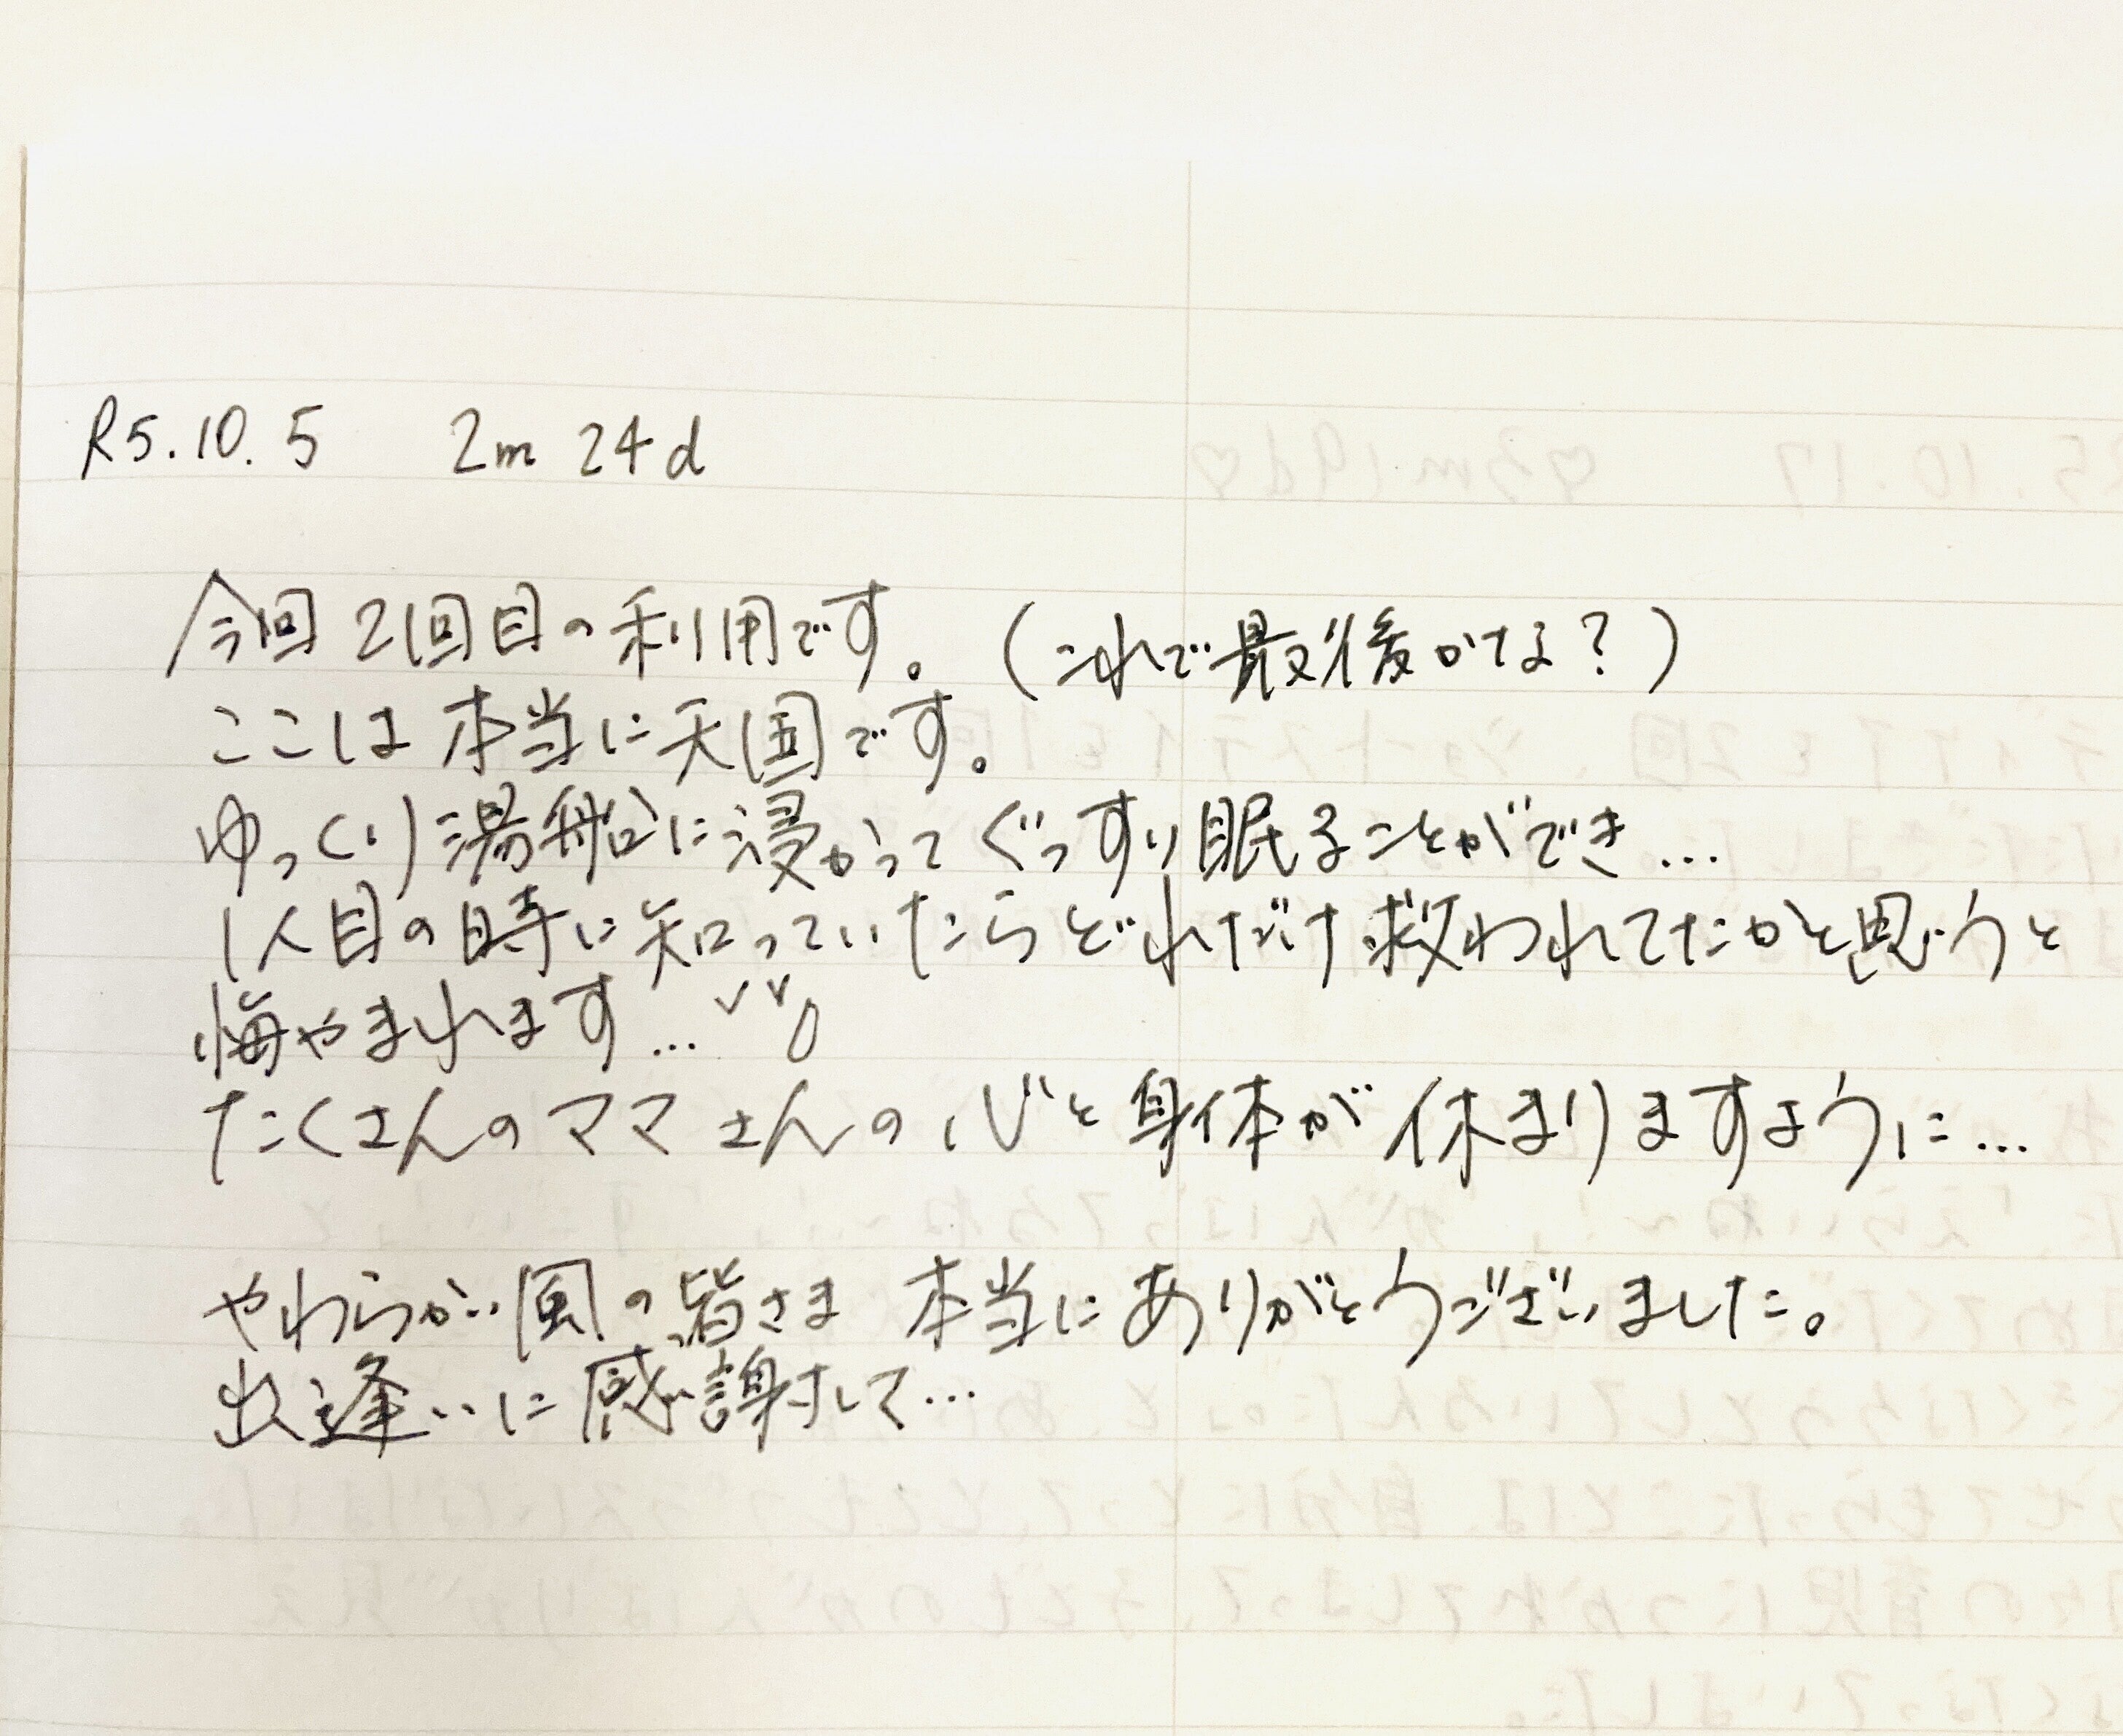 R5.10.5 2m 24d
今回2回目の利用です。(これで最後かな?)
ここは本当に天国です。
ゆっくり湯船に浸かってぐっすり眠ることができ…
1人目の時に知っていたらどれだけ救われてたかと思うと
悔やまれます…
たくさんのママさんの心と身体が休まりますように…
やわらかい風の皆さま 本当にありがとうございました。
出逢いに感謝して…